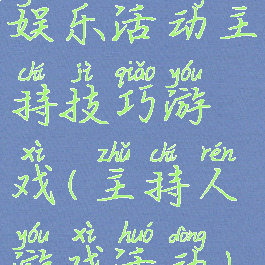 娱乐活动主
chí jì qiǎo yóu
持技巧游
xì zhǔ chí rén
戏(主持人
yóu xì huó dòng
游戏活动)